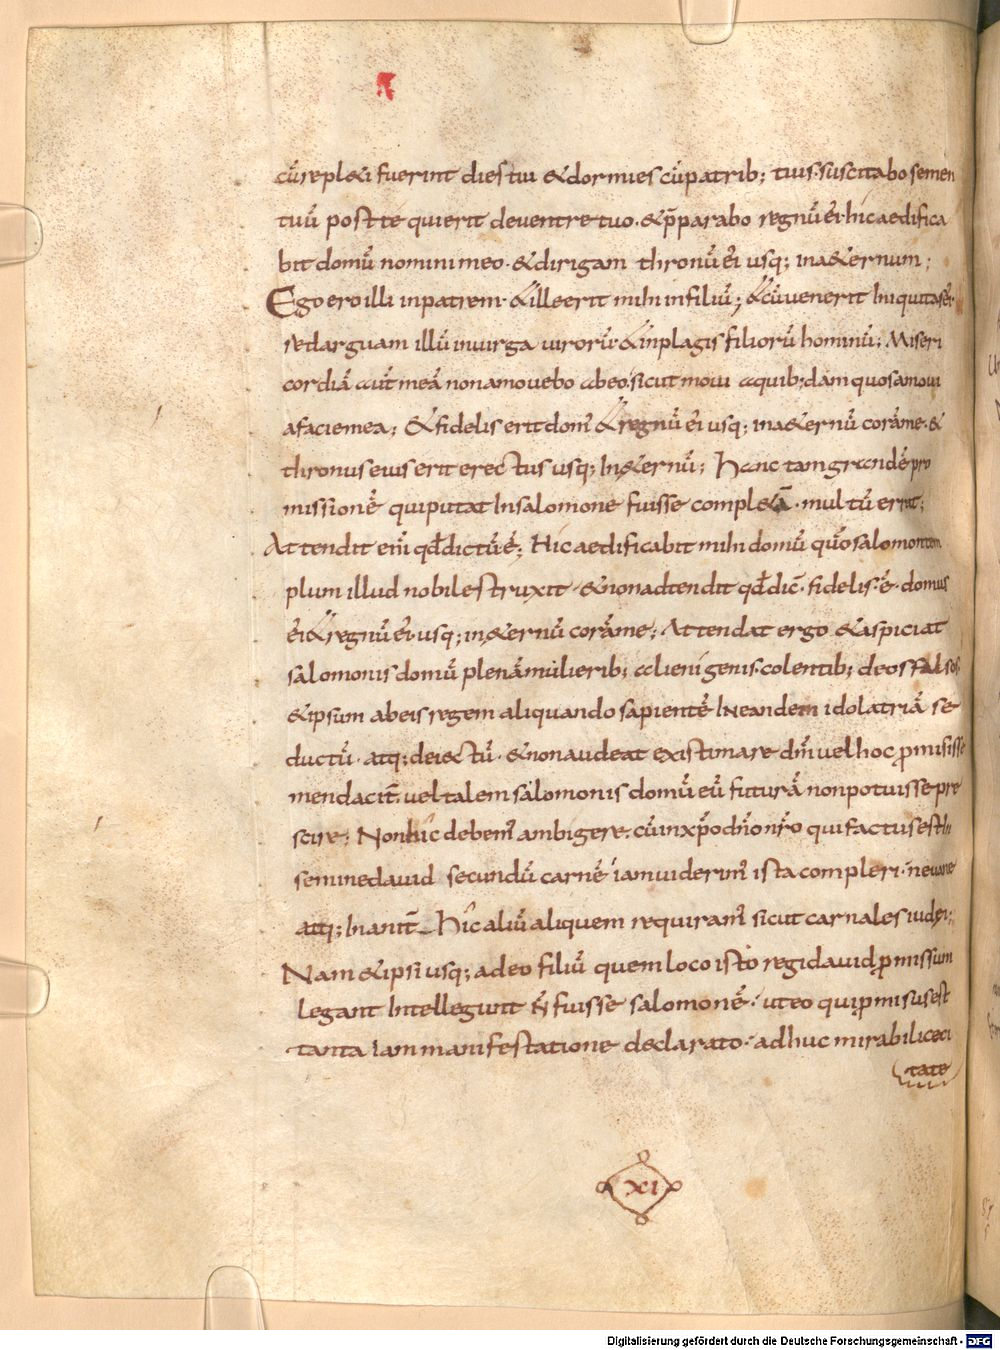 cū repl&i fuerint dies tui &dormies cū patrib; tuis. suscitabo semen
tuū post te qui erit de ventre tuo. &p̄parabo regnū ei. hic aedifica
bit domū nomini meo. &dirigam thronū ei usq; in a&ernum;
Ego ero illi in patrem. &ille erit mihi in filiū; &cū venerit iniquitas ei
redarguam illū in uirga uirorū. &in plagis filiorū hominū; Miseri
cordiā aut meā non amovebo ab eo. sicut movi a quib;dam quos amovi
a facie mea; &fidelis erit dom &regnū ei usq; in a&ernū corā me. &
thronus eius erit erectus usq; in &ernū; Hanc tam grandē pro
missionē qui putat in salomone fuisse compl&ā. multū errat;
Attendit enī qđ dictū ē; Hic aedificabit mihi domū quō salomon tem
plum illud nobile struxit. &non adtendit qđ dic̄. fidelis. ē. domus
ei &regnū ei. usq; in &ernū corā me; Attendat ergo &aspiciat
salomonis domū plenā mulierib; alienigenis. colentib; deos falsos
&ipsum ab eis regem aliquando sapientē in eandem idolatriā se
ductū. atq; deiectū. &non audeat existimare dm̄ vel hoc promisisse
mendacit̄. vel talem salomonis domū eū futurā non potuisse pre
scire; Non hic debem ambigere. cū in xp̄o dn̄o nr̄o qui factus est in
semine dauid secundū carnē iam uiderim ista compleri. ne uane
atq; inanit̄ hic aliū aliquem requiram sicut carnales iudei;
Nam &ipsi usq; adeo filiū quem loco isto regi dauid promissum
legant intellegunt n̄ fuisse salomonē. ut eo qui promisus est
tanta iam manifestatione declarato. adhuc mirabili ceci
tate
XI
Digitalisierung gefördert durch die Deutsche Forschungsgemeinschaft - DFG